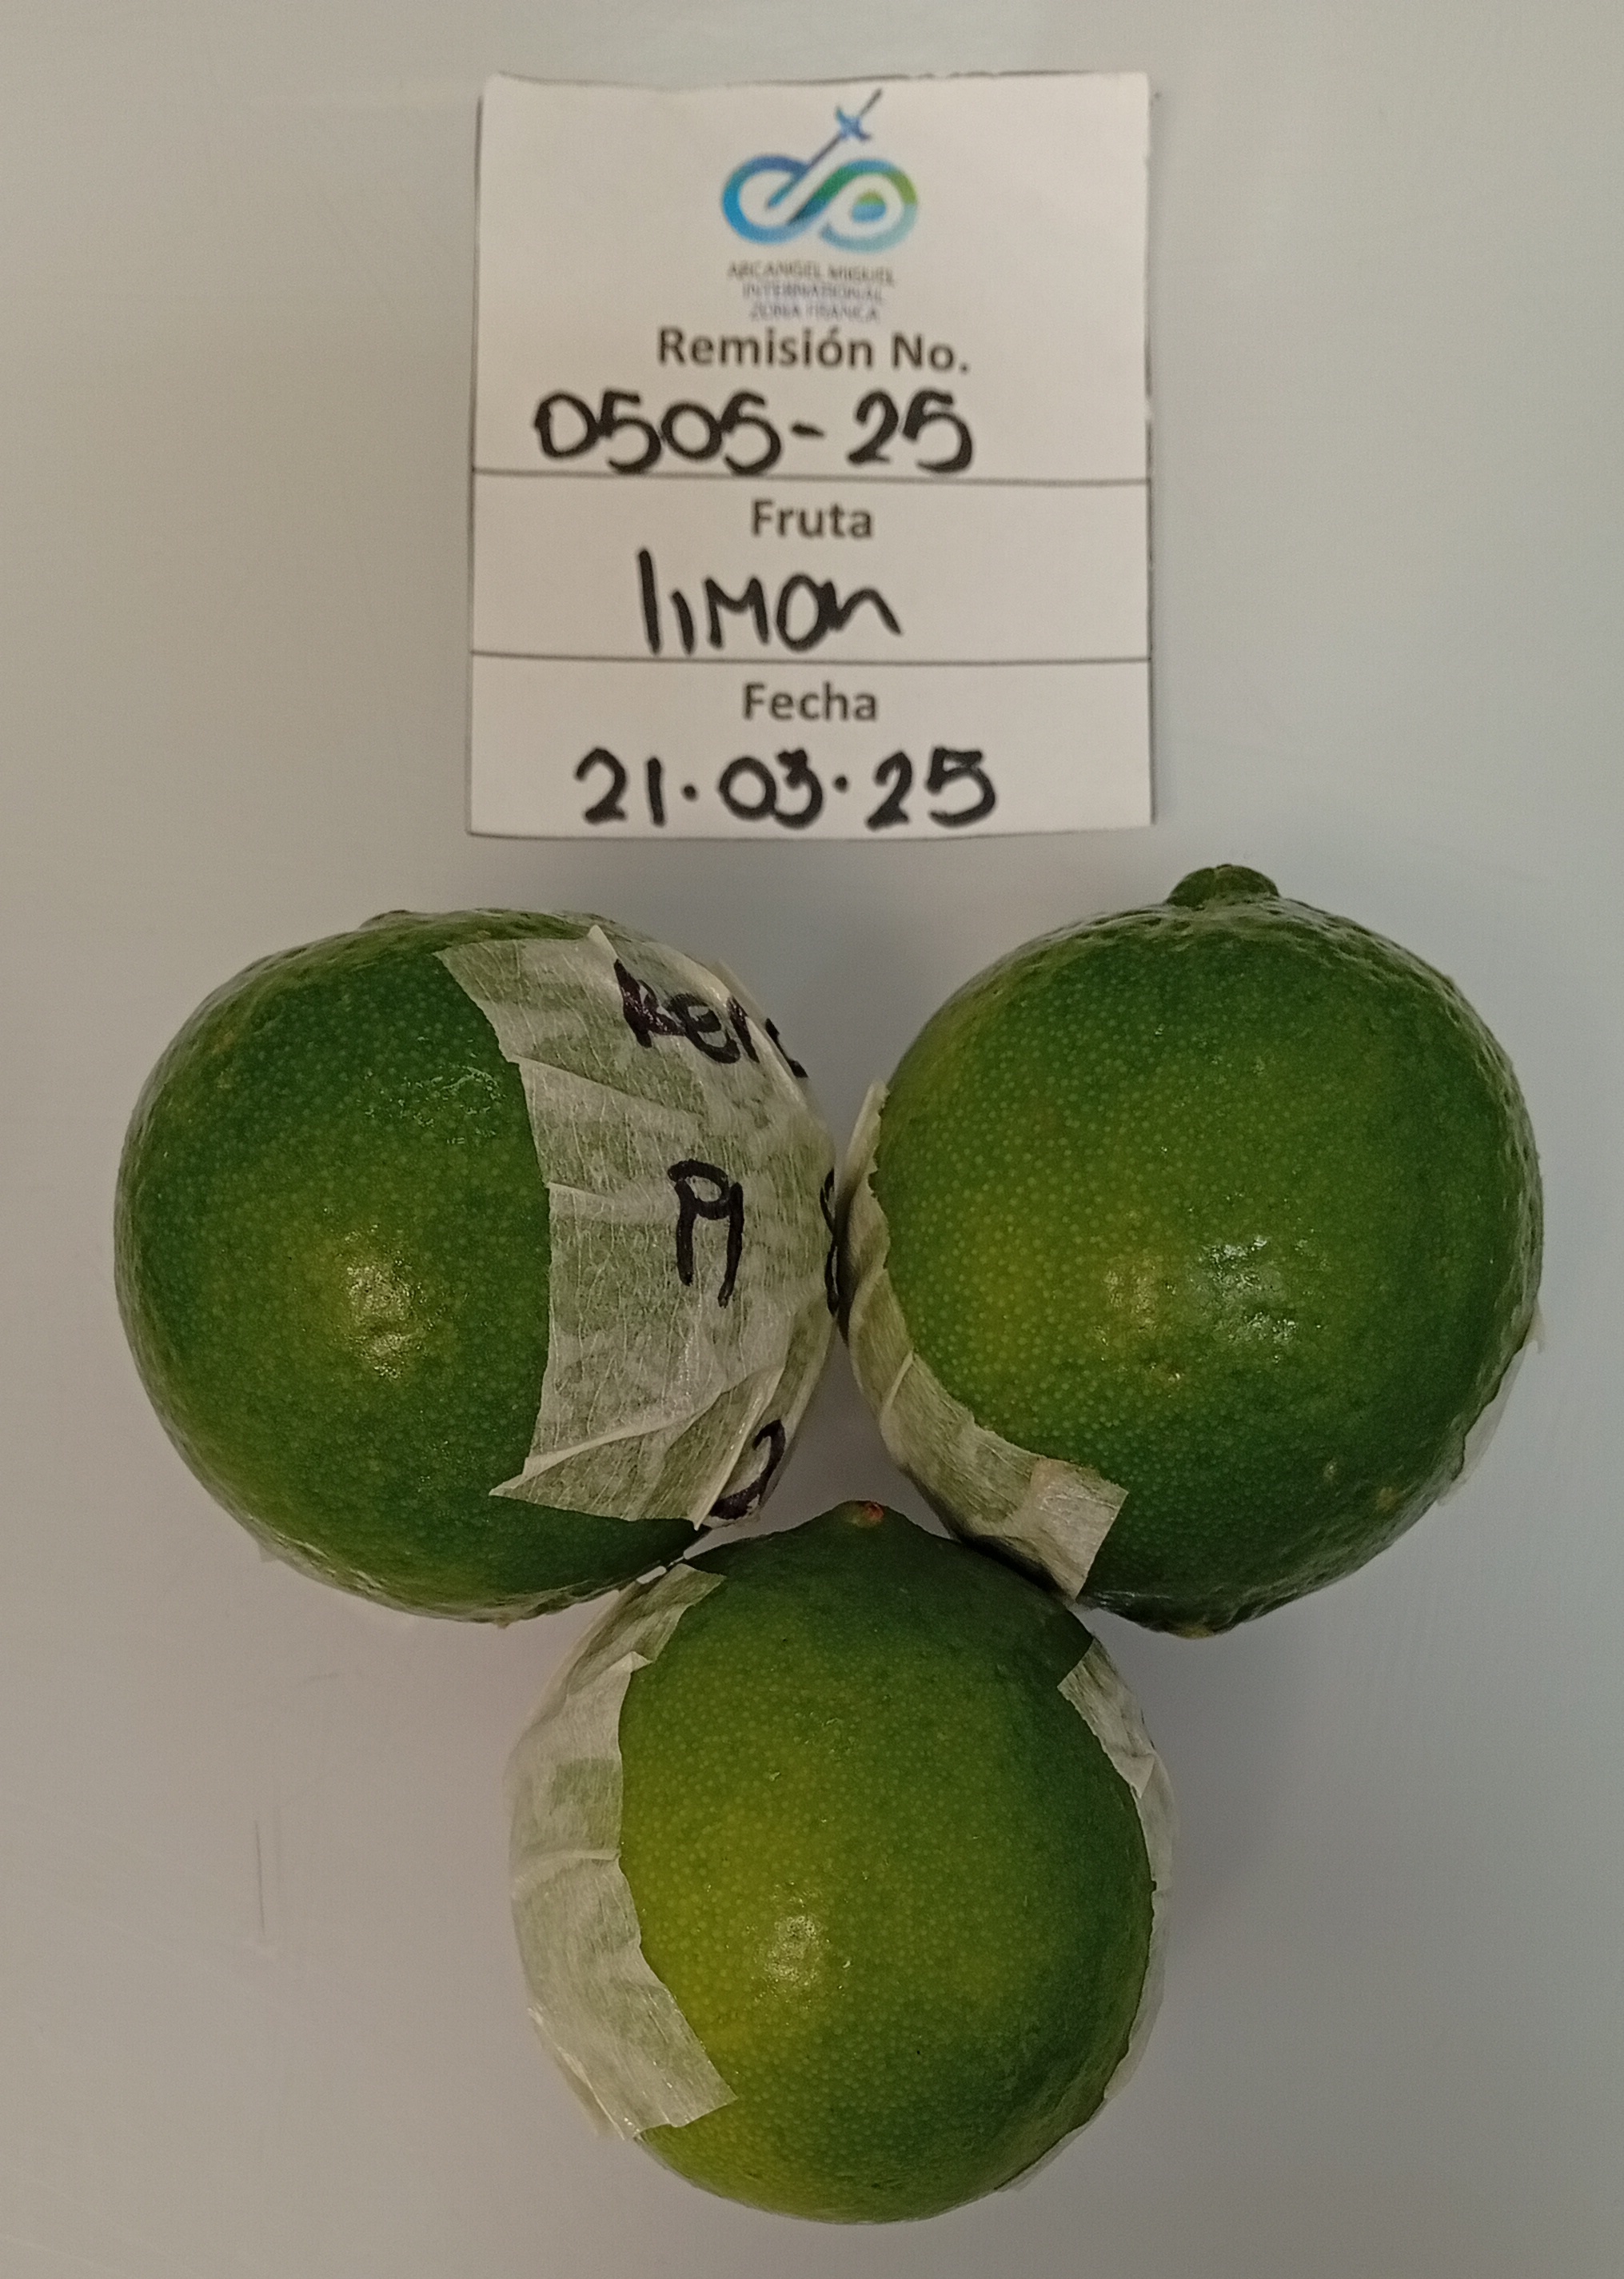 ARCANGEL MIGUEL
INTERNATIONAL
ZONA FRANCA
Remisión No.
0505-25
Fruta
limon
Fecha
21.03.25